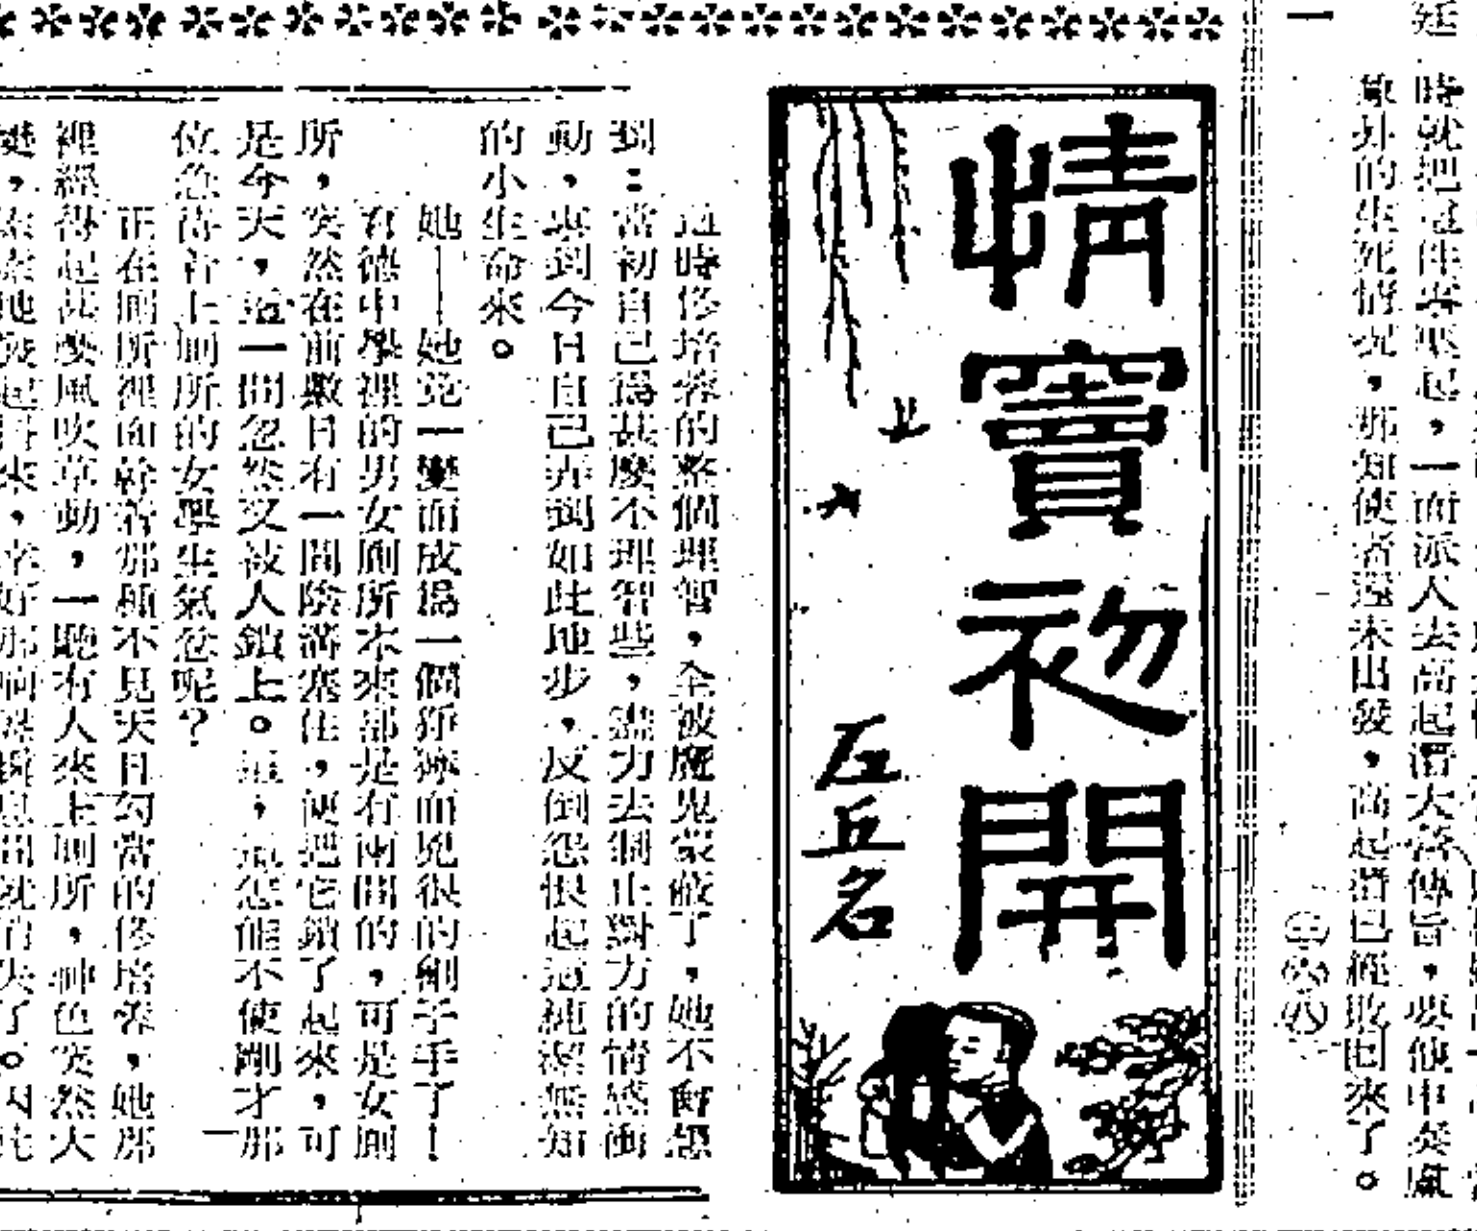 廷
時就把這件事壓起，一面派人去高起潛大營傳旨，要他申奏盧
象昇的生死情況，那知使者還未出發，高起潛已經敗回來了。
一
情竇初開
左丘名
這時修培蓉的整個理智，全被魔鬼蒙蔽了，她不會想
到：當初自己為甚麼不理智些，盡力去制止對方的情感衝
動，弄到今日自己弄到如此地步，反倒怨恨起這純潔無知
的小生命來。
她——她竟一變而成為一個猙獰而兇很的劊子手了！
育德中學裡的男女廁所本來都是有兩間的，可是女廁
所，突然在前數日有一間陰溝塞住，便把它鎖了起來，可
是今天，這一間忽然又被人鎖上。這，這怎能不使剛才那
位急待着上廁所的女學生氣忿呢？
正在廁所裡面幹着那種不見天日勾當的修培蓉，她那
裡經得起甚麼風吹草動，一聽有人來上廁所，神色突然大